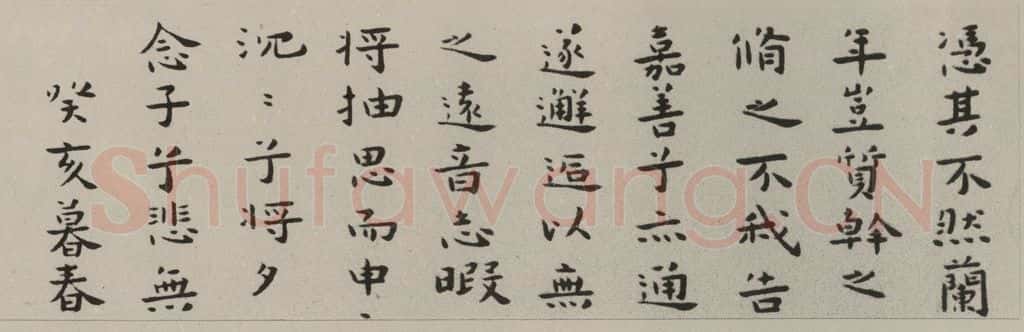 憑其不然蘭
年豈質幹之
脩之不我告
嘉善兮亦通
遂邂逅以無
之遠音忘暇
将抽思而申、
沉〻兮将夕
念子兮悲無
癸亥暮春
Shufawang.CN